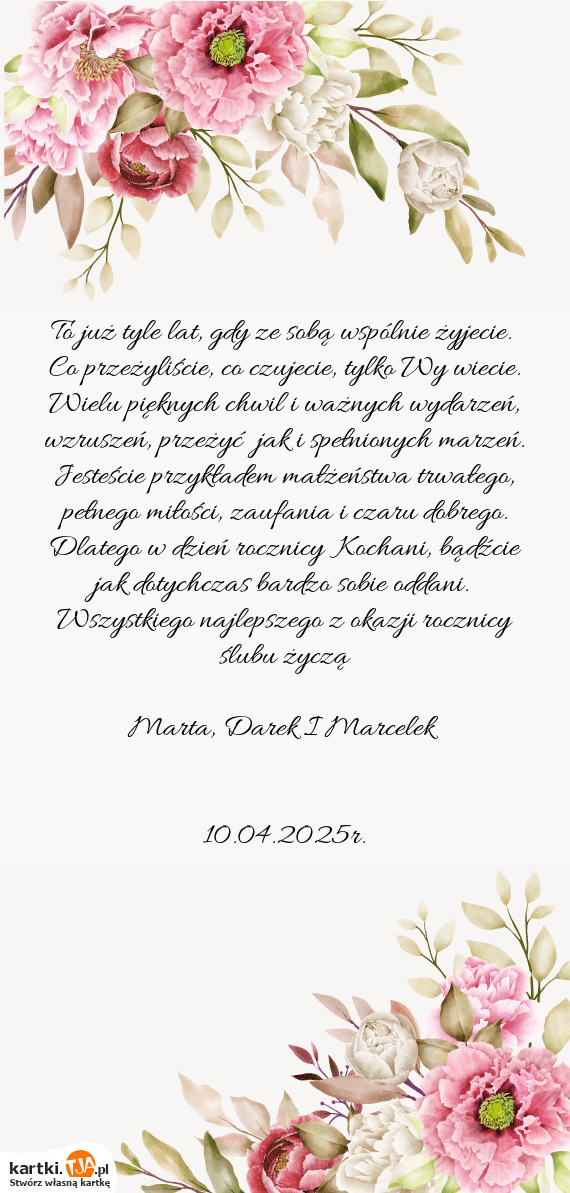 To już tyle lat, gdy ze sobą wspólnie żyjecie.
Co przeżyliście, co czujecie, tylko Wy wiecie.
Wielu pięknych chwil i ważnych wydarzeń,
wzruszeń, przeżyć jak i spełnionych marzeń.
Jesteście przykładem małżeństwa trwałego,
pełnego miłości, zaufania i czaru dobrego.
Dlatego w dzień rocznicy Kochani, bądźcie
jak dotychczas bardzo sobie oddani.
Wszystkiego najlepszego z okazji rocznicy
ślubu życzą
Marta, Darek I Marcelek
10.04.2025r.
kartki.TJA.pl
Stwórz własną kartkę